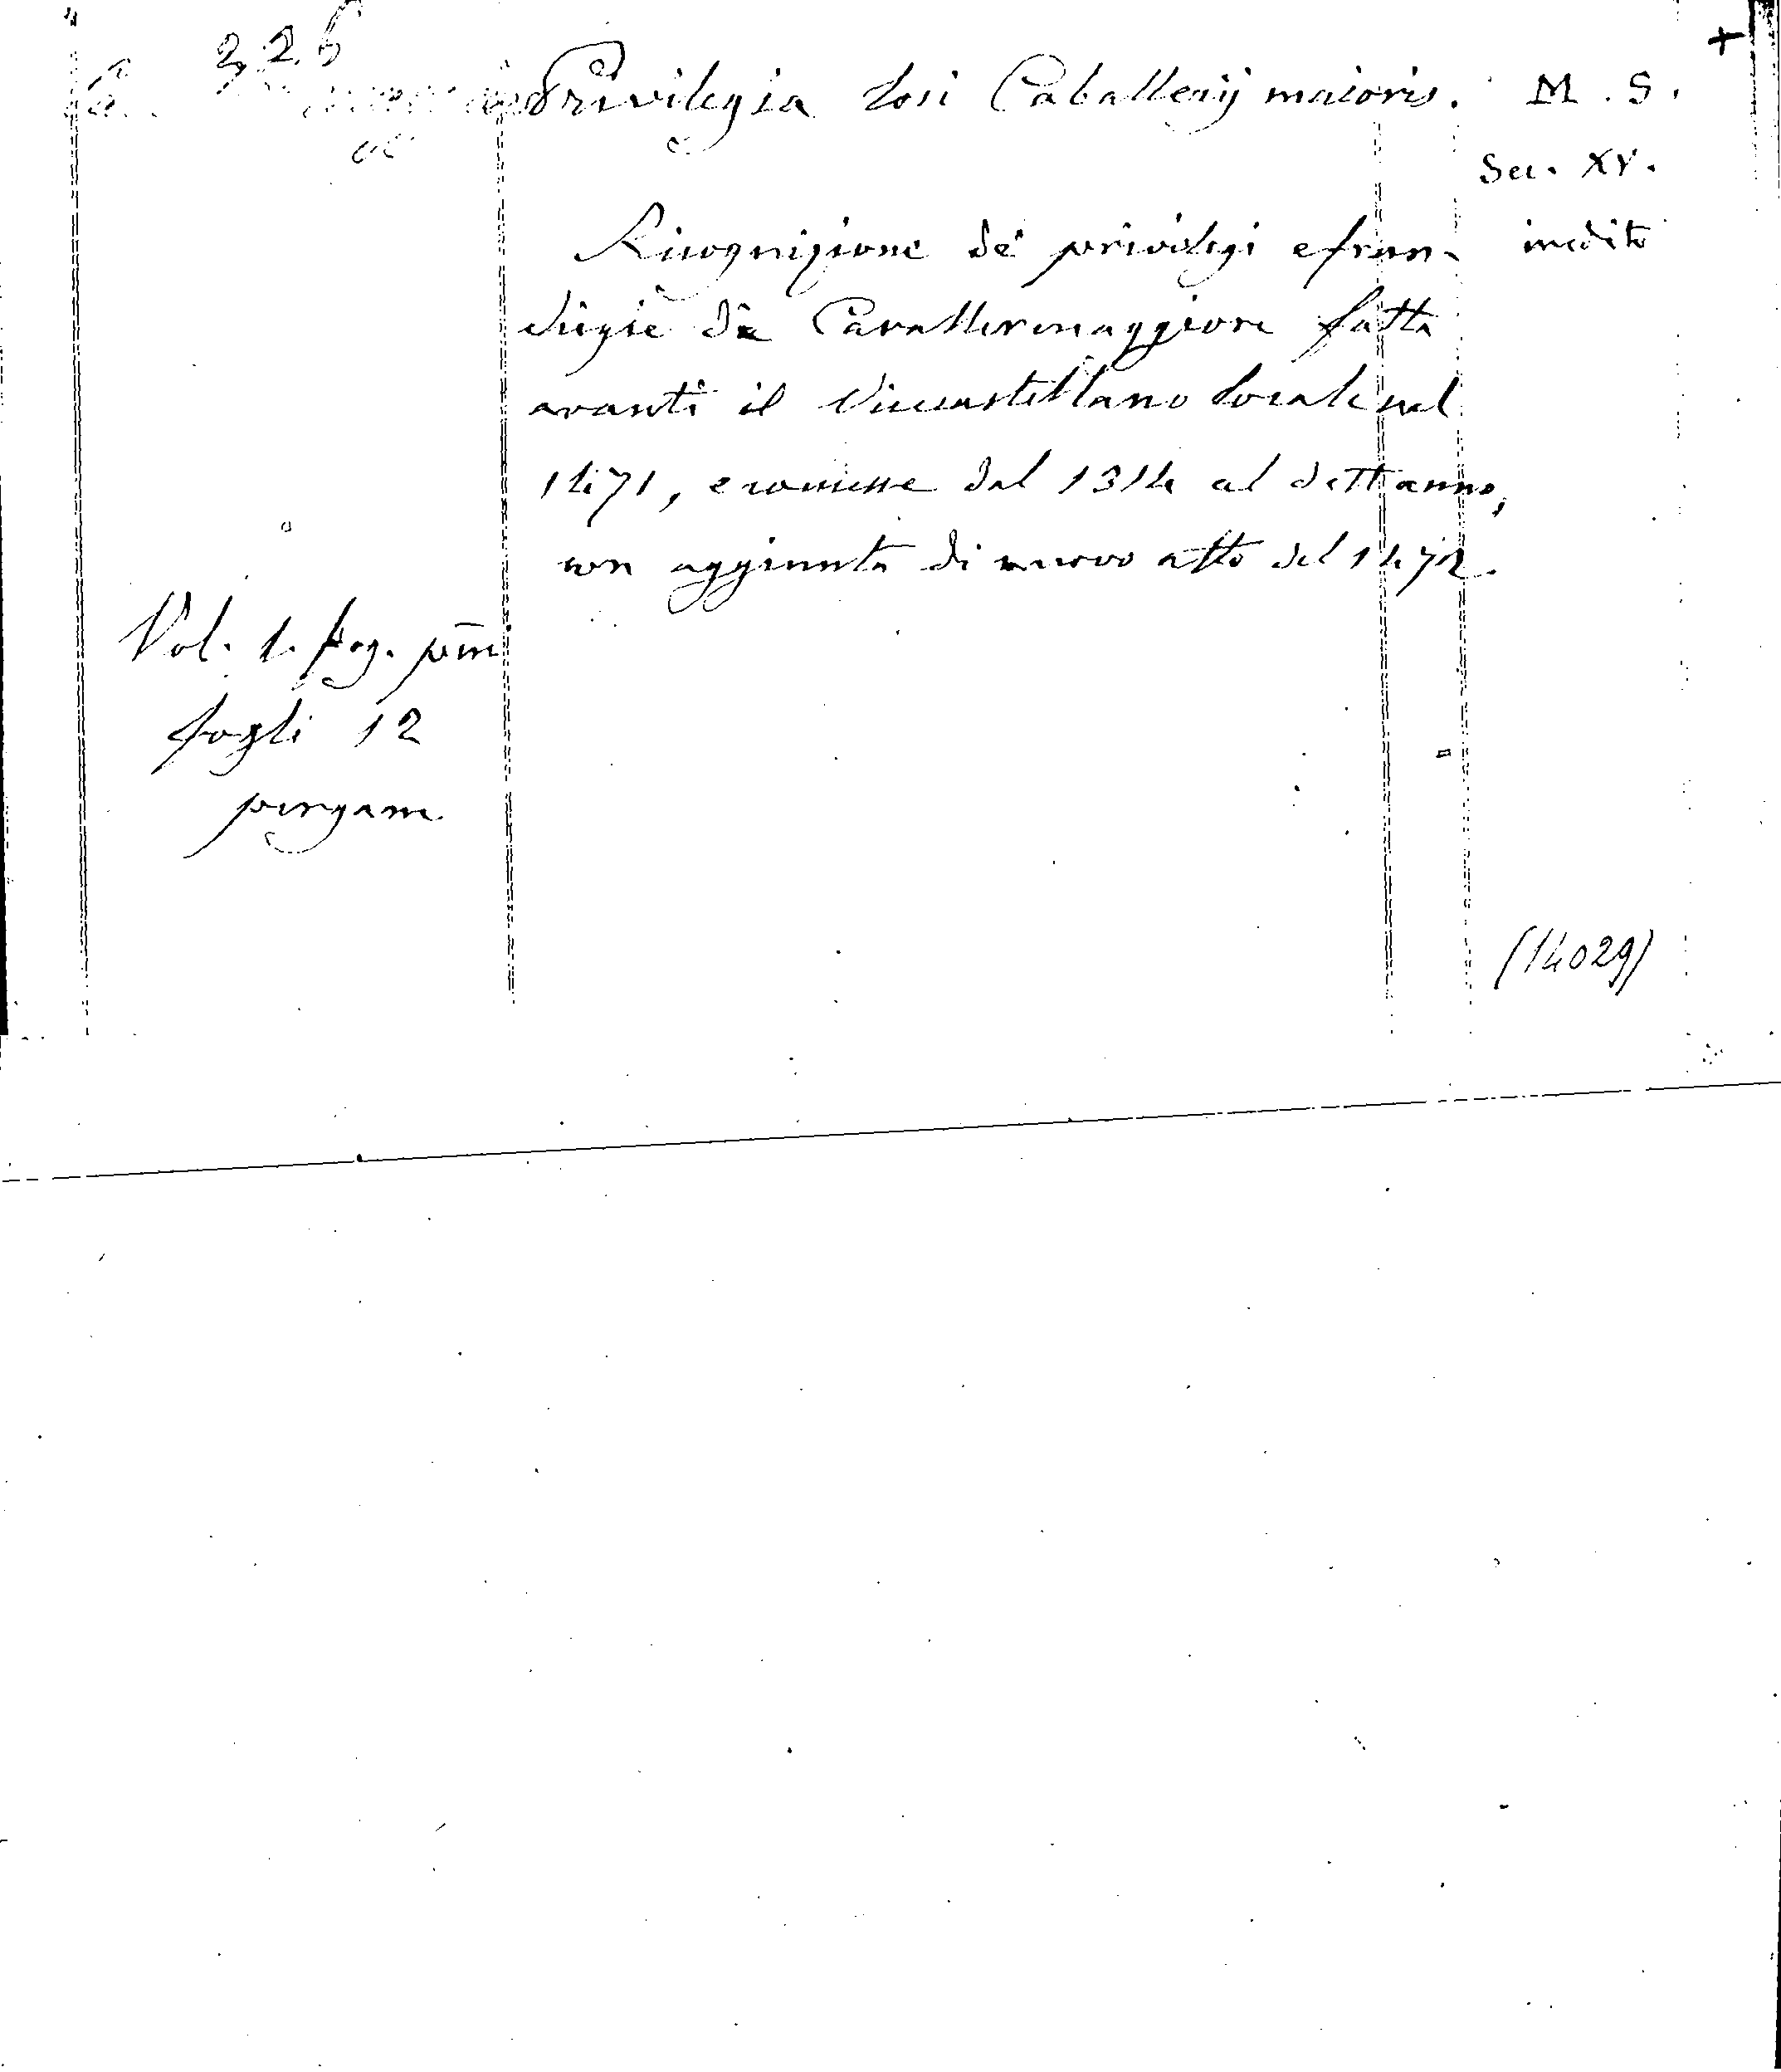 326
Privilegia Loci Caballerij maioris. M. S.
Sec. XV.
Ricognizione de' privilegi e fran- inedito
chigie di Cavallermaggiore fatta
avanti il Vicecastellano locale nel
1471, e concesse dal 1314 al dett'anno,
con aggiunta di nuovo atto del 1472.
Vol. 1. leg. pm
fogli 12
pergam.
(14029)